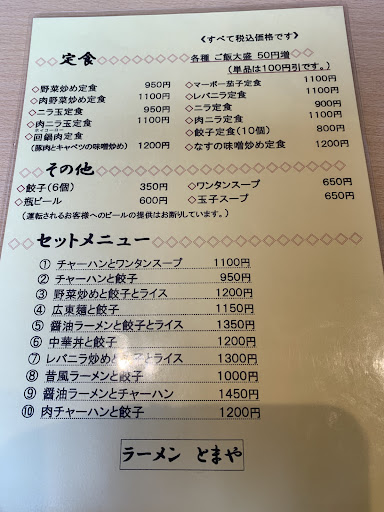 《すべて税込価格です》
定食
各種 ご飯大盛 50円増
(単品は100円引です。)
◇野菜炒め定食 950円
◇肉野菜炒め定食 1100円
◇ニラ玉定食 950円
◇肉ニラ玉定食 1100円
ホイコーロー
◇回鍋肉定食
(豚肉とキャベツの味噌炒め) 1200円
◇マーボー茄子定食 1100円
◇レバニラ定食 1100円
◇ニラ定食 900円
◇肉ニラ定食 1100円
◇餃子定食(10個) 800円
◇なすの味噌炒め定食 1200円
その他
◇餃子(6個) 350円
◇瓶ビール 600円
◇ワンタンスープ 650円
◇玉子スープ 650円
(運転されるお客様へのビールの提供はお断りしています。)
セットメニュー
① チャーハンとワンタンスープ 1100円
② チャーハンと餃子 950円
③ 野菜炒めと餃子とライス 1200円
④ 広東麺と餃子 1150円
⑤ 醤油ラーメンと餃子とライス 1350円
⑥ 中華丼と餃子 1200円
⑦ レバニラ炒めと餃子とライス 1300円
⑧ 昔風ラーメンと餃子 1000円
⑨ 醤油ラーメンとチャーハン 1450円
⑩ 肉チャーハンと餃子 1200円
ラーメン とまや